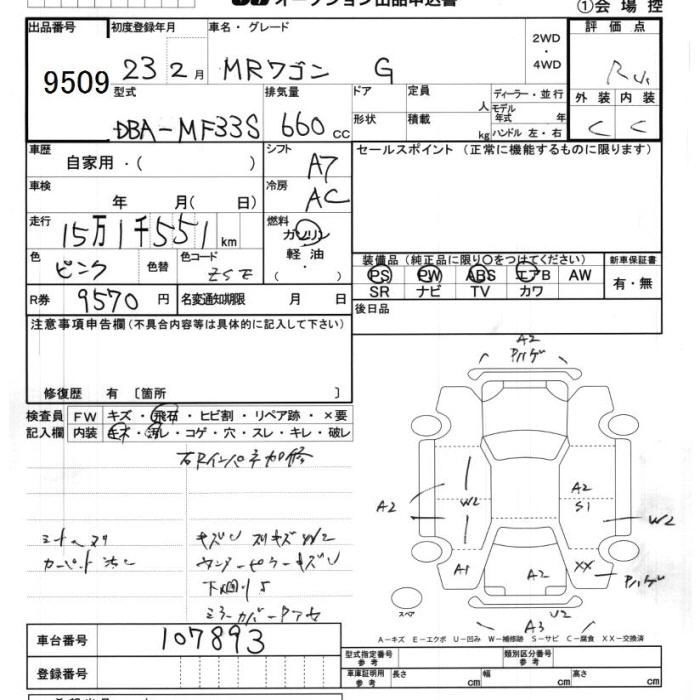 オークション出品申込書
①会場控
出品番号 初度登録年月 車名・グレード 評価点
9509 23 2月 MRワゴン G 2WD・4WD
型式 排気量 ドア 定員 人 ディーラー・並行 外装 内装
DBA-MF33S 660cc 形状 積載 kg モデル年式 年 ハンドル 左・右 C C
車歴 シフト セールスポイント (正常に機能するものに限ります)
自家用・( ) A7
車検 年 月( 日) 冷房 AC
走行 15万1千551km 燃料 ガソリン 軽油 ( ・ )
色 ピンク 色替 色コード ZSE
装備品 (純正品に限り○をつけてください) 新車保証書
PS PW ABS エアB AW 有・無
SR ナビ TV カワ
R券 9570円 名変通知期限 月 日
後日品
注意事項申告欄 (不具合内容等は具体的に記入して下さい)
修復歴 有 〔箇所 〕
検査員 FW キズ・飛石・ヒビ割・リペア跡・×要
記入欄 内装 キズ・汚レ・コゲ・穴・スレ・キレ・破レ
A2
A2
W2
A2
S1
W2
A1
A2
XX
U2
A3
スペア
A-キズ E-エクボ U-凹み W-補修跡 S-サビ C-腐食 XX-交換済
車台番号 107893
登録番号
型式指定番号 参考 類別区分番号 参考
車庫証明用 参考 長さ cm 幅 cm 高さ cm